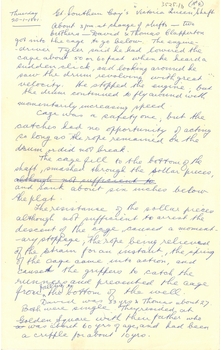 Thursday St. Southern Cross
About 2 p.m. at change of shifts - two
brothers - David & Thomas
got into the cage to go below. The engine-
driver Tyler said he had lowered the
cage about 50 or 60 feet when he heard a
sudden click, and looking around he
saw the drum revolving with great
velocity. He stopped the engine, but
the drum continued to fly around with
momentarily increasing speed
Cage was a safety one, but the
catches had no opportunity of acting
so long as the rope remained on the
drum, & did not break.
The cage fell to the bottom of the
shaft, smashed through the sollar pieces,
although not sufficient to
and sank about six inches below
the plat.
The resistance of the sollar pieces
although not sufficient to arrest the
descent of the cage, caused a moment-
ary stoppage. The rope being relieved
of the strain for an instant, the spring
of the cage came into action, and
caused the grippers to catch the
runners and prevented the cage
from falling to the bottom of the well.
David was 23 yrs & Thomas about 27
Both were single. They resided at
Golden Square with their father who
was about 60 yrs of age, and had been
a cripple for about 10 yrs.